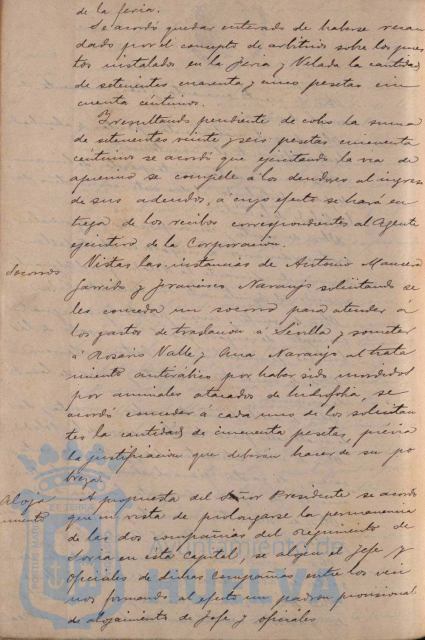 de la feria.
Se acordó quedar enterado de haberse recau
dado por el concepto de arbitrios sobre los pues
tos instalados en la Feria y Velada la cantidad
de setecientas cuarenta y cinco pesetas cin
cuenta céntimos.
Y resultando pendiente de cobro la suma
de setecientas veinte y seis pesetas cincuenta
céntimos se acordó que ejercitando la vía de
apremio se compele á los deudores al ingreso
de sus adeudos, á cuyo efecto se hará en
trega de los recibos correspondientes al Agente
ejecutivo de la Corporación.
Socorros
Vistas las instancias de Antonio Mancera
Garrido y Francisco Naranjo solicitando se
les conceda un socorro para atender á
los gastos de traslación á Sevilla y someter
á Rosario Valle y Ana Naranjo al trata
miento antirrábico por haber sido mordidos
por animales atacados de hidrofobia, se
acordó conceder á cada uno de los solicitan
tes la cantidad de cincuenta pesetas, previa
la justificación que deberán hacer de su po
breza.
Aloja
miento
A propuesta del Señor Presidente se acordó
que en vista de prolongarse la permanencia
de las dos compañías del Regimiento de
Soria en esta Capital, se alojen el jefe y
oficiales de dichas compañías entre los veci
nos formando al efecto un padrón provisional
de alojamiento de Jefe y oficiales